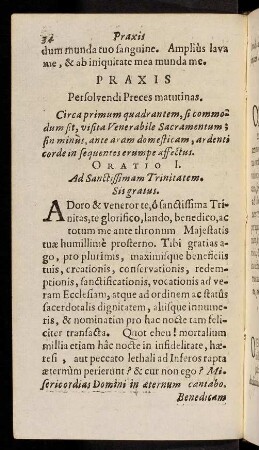 34 Praxis
dum munda tuo sanguine. Ampliùs lava
me, & ab iniquitate mea munda me.
PRAXIS
Persolvendi Preces matutinas.
Circa primum quadrantem, si commo-
dum sit, visita Venerabile Sacramentum;
sin minus, ante aram domesticam, ardenti
corde in sequentes erumpe affectus.
ORATIO I.
Ad Sanctissimam Trinitatem.
Sis gratus.
ADoro & veneror te, ô sanctissima Tri-
nitas, te glorifico, laudo, benedico, ac
totum me ante thronum Majestatis
tuæ humillimè prosterno. Tibi gratias a-
go, pro plurimis, maximisque beneficiis
tuis, creationis, conservationis, redem-
ptionis, sanctificationis, vocationis ad ve-
ram Ecclesiam, atque ad ordinem ac statûs
sacerdotalis dignitatem, aliisque innume-
ris, & nominatim pro hac nocte tam feli-
citer transacta. Quot eheu! mortalium
millia etiam hâc nocte in infidelitate, hæ-
resi, aut peccato lethali ad Inferos rapta
æternùm perierunt? & cur non ego? Mi-
sericordias Domini in æternum cantabo.
Benedicam